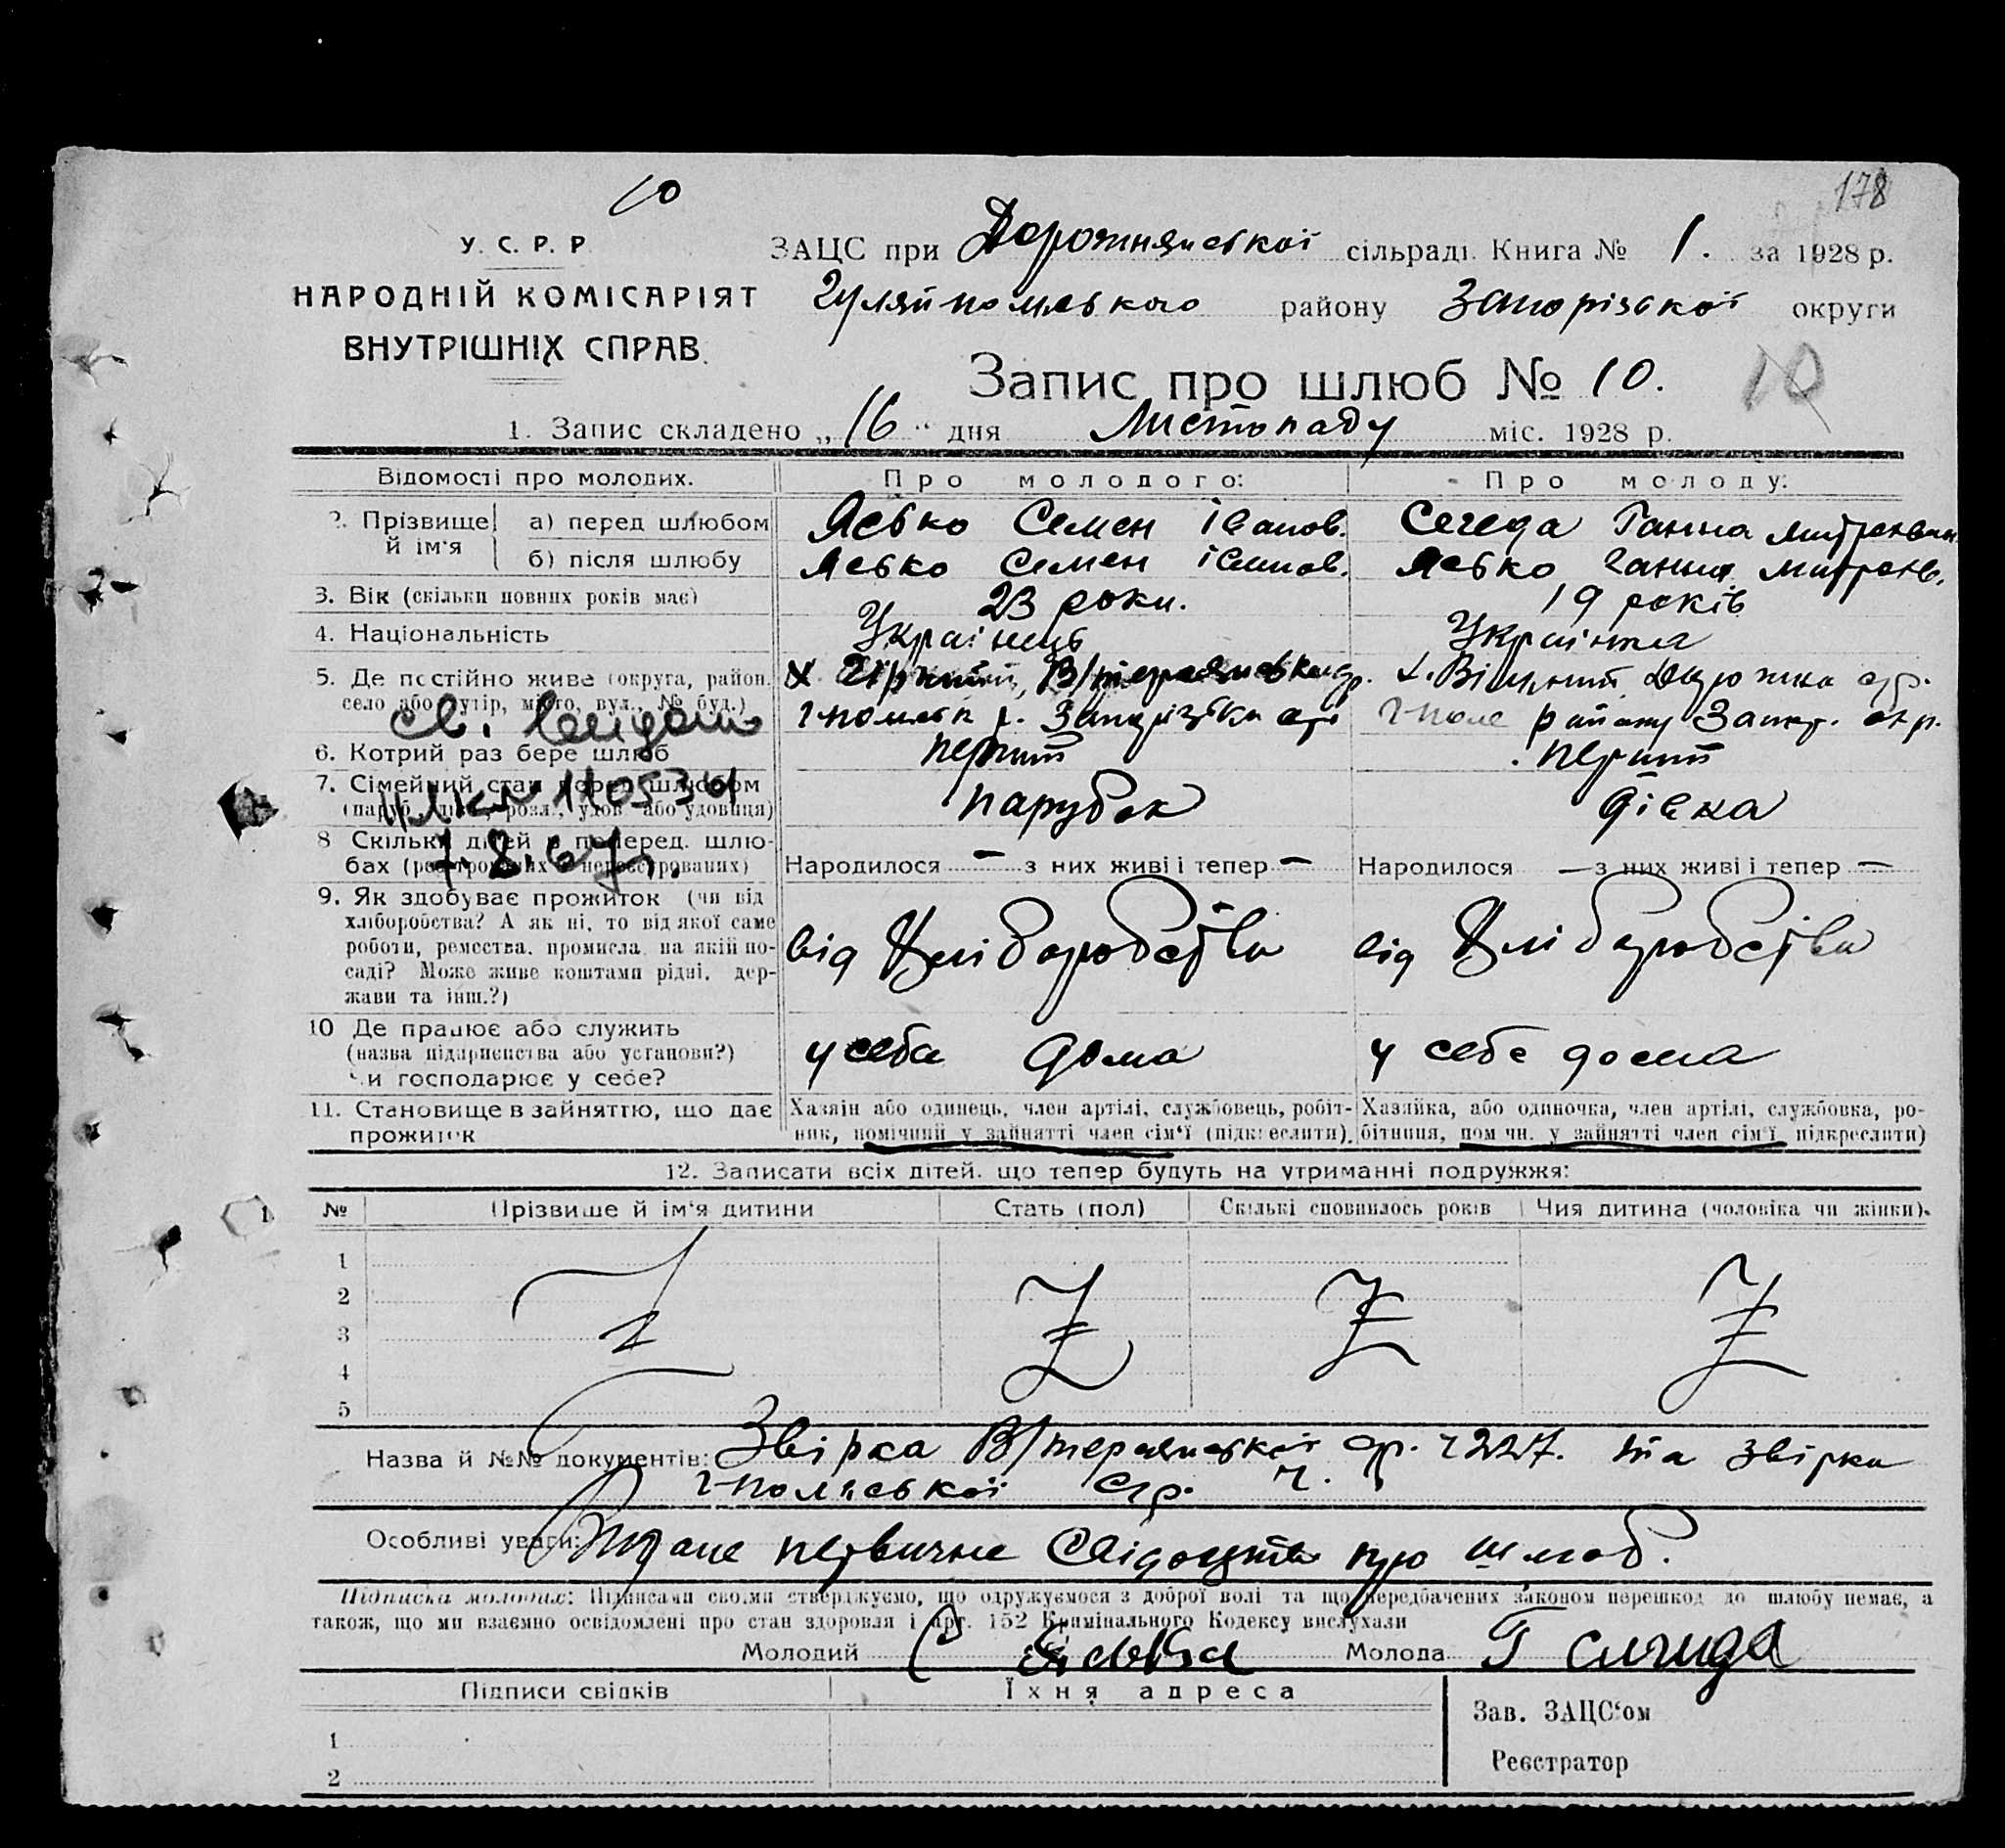 10
178
У. С. Р. Р.
НАРОДНІЙ КОМІСАРІЯТ
ВНУТРІШНІХ СПРАВ.
ЗАЦС при Дорожнянської сільраді. Книга № 1. за 1928 р.
Гуляйпольського району Запорізької округи
Запис про шлюб № 10. 10
1. Запис складено „16“ дня Листопаду міс. 1928 р.
Відомості про молодих. Про молодого: Про молоду:
2. Прізвище й ім'я
а) перед шлюбом Ясько Семен Іванов. Сегеда Ганна
б) після шлюбу Ясько Семен Іванов. Ясько Ганна
3. Вік (скільки повних років має) 23 роки. 19 років
4. Національність Українець Українка
5. Де постійно живе (округа, район, село або хутір, місто, вул., № буд.)
Г-польськ р. Запорізьки Г-поле району Запор. окр.
св.
6. Котрий раз бере шлюб перший перший
7. Сімейний стан перед шлюбом парубок дівка
110534
7.8.67
8 Скільки дітей в поперед. шлюбах
Народилося — з них живі і тепер — Народилося — з них живі і тепер —
9. Як здобуває прожиток (чи від
хліборобства? А як ні, то від якої саме
роботи, ремества, промисла, на якій по-
саді? Може живе коштами рідні, дер-
жави та інш.?)
від Хліборобства від Хліборобства
10 Де працює або служить
(назва підприємства або установи?)
Чи господарює у себе?
у себе дома у себе дома
11. Становище в зайняттю, що дає
прожиток
Хазяін або одинець, член артілі, службовець, робіт-
ник, помічний у зайнятті член сім'ї (підкреслити).
Хазяйка, або одиночка, член артілі, службовка, ро-
бітниця, помічн. у зайнятті член сім'ї підкреслити)
12. Записати всіх дітей, що тепер будуть на утриманні подружжя:
№ Прізвище й ім'я дитини Стать (пол) Скількі сповнилось років Чия дитина (чоловіка чи жінки).
1
2
3
4
5
Назва й №№ документів: Звірка В/терсянської ср. ч 227. та звірки
г-польської ср. ч.
Особливі уваги: Видане первичне Свідоцтво про шлюб.
Підписка молодих: Підписами своїми стверджуємо, що одружуємося з доброї волі та що передбачених законом перешкод до шлюбу немає, а
також, що ми взаємно освідомлені про стан здоровля і Арт. 152 Крамінального Кодексу вислухали
Молодий С Ясько Молода Г сигида
Підписи свідків Їхня адреса
Зав. ЗАЦС'ом
1
Реєстратор
2